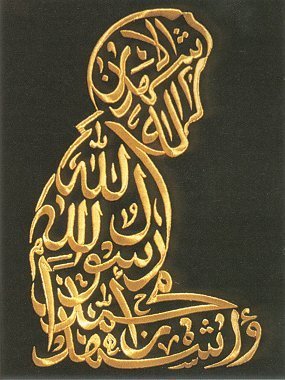 اشهد ان لا اله الا
الله
وأشهد ان
محمدا
رسول الله